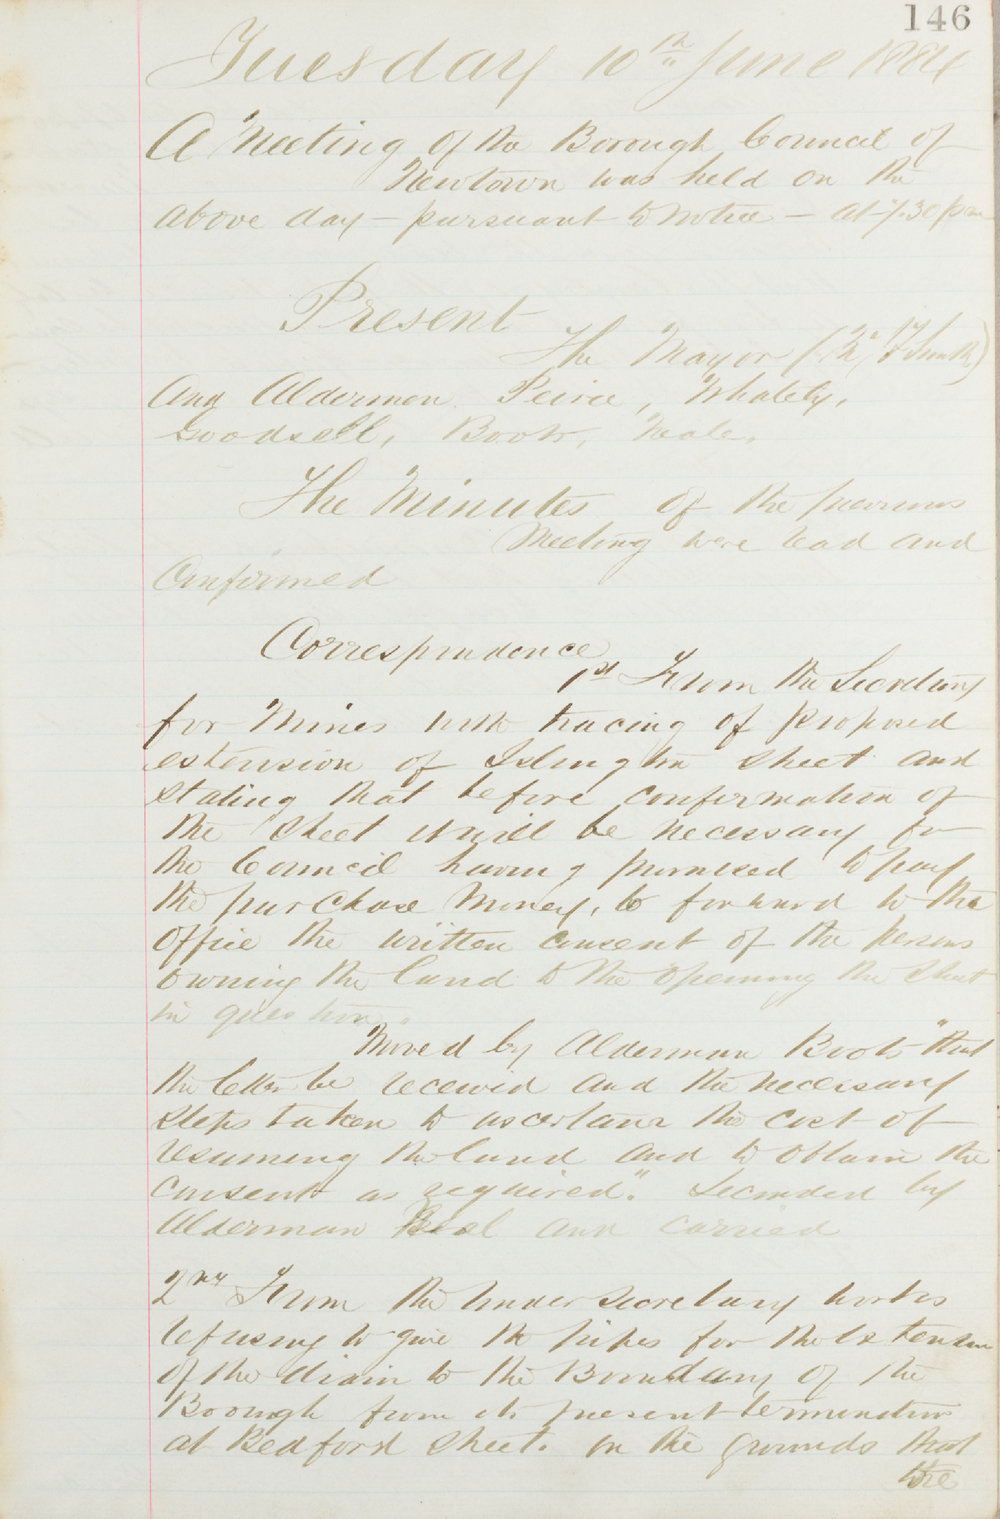 146
Tuesday 10th June 1884
A Meeting of the Borough Council of
Newtown was held on the
above day - pursuant to notice - at 7.30 pm
Present
The Mayor (Mr Smith)
And Aldermen Peirce, Whately,
Goodsell, Boots, Neale.
The Minutes of the previous
Meeting were read and
Confirmed
Correspondence
1st From the Secretary
for Mines with tracing of proposed
extension of Islington Street and
stating that before confirmation of
the Street it will be necessary for
the Council having promised to pay
the purchase Money, to forward to the
Office the written consent of the persons
owning the land to the opening the Street
in question.
Moved by Alderman Boots "that
the letter be received and the necessary
steps taken to ascertain the cost of
resuming the land and to obtain the
consent as required." Seconded by
Alderman and carried
2nd From the Under Secretary Works
refusing to give the pipes for the extension
of the drain to the Boundary of the
Borough from its present termination
at Bedford Street. on the grounds that
the